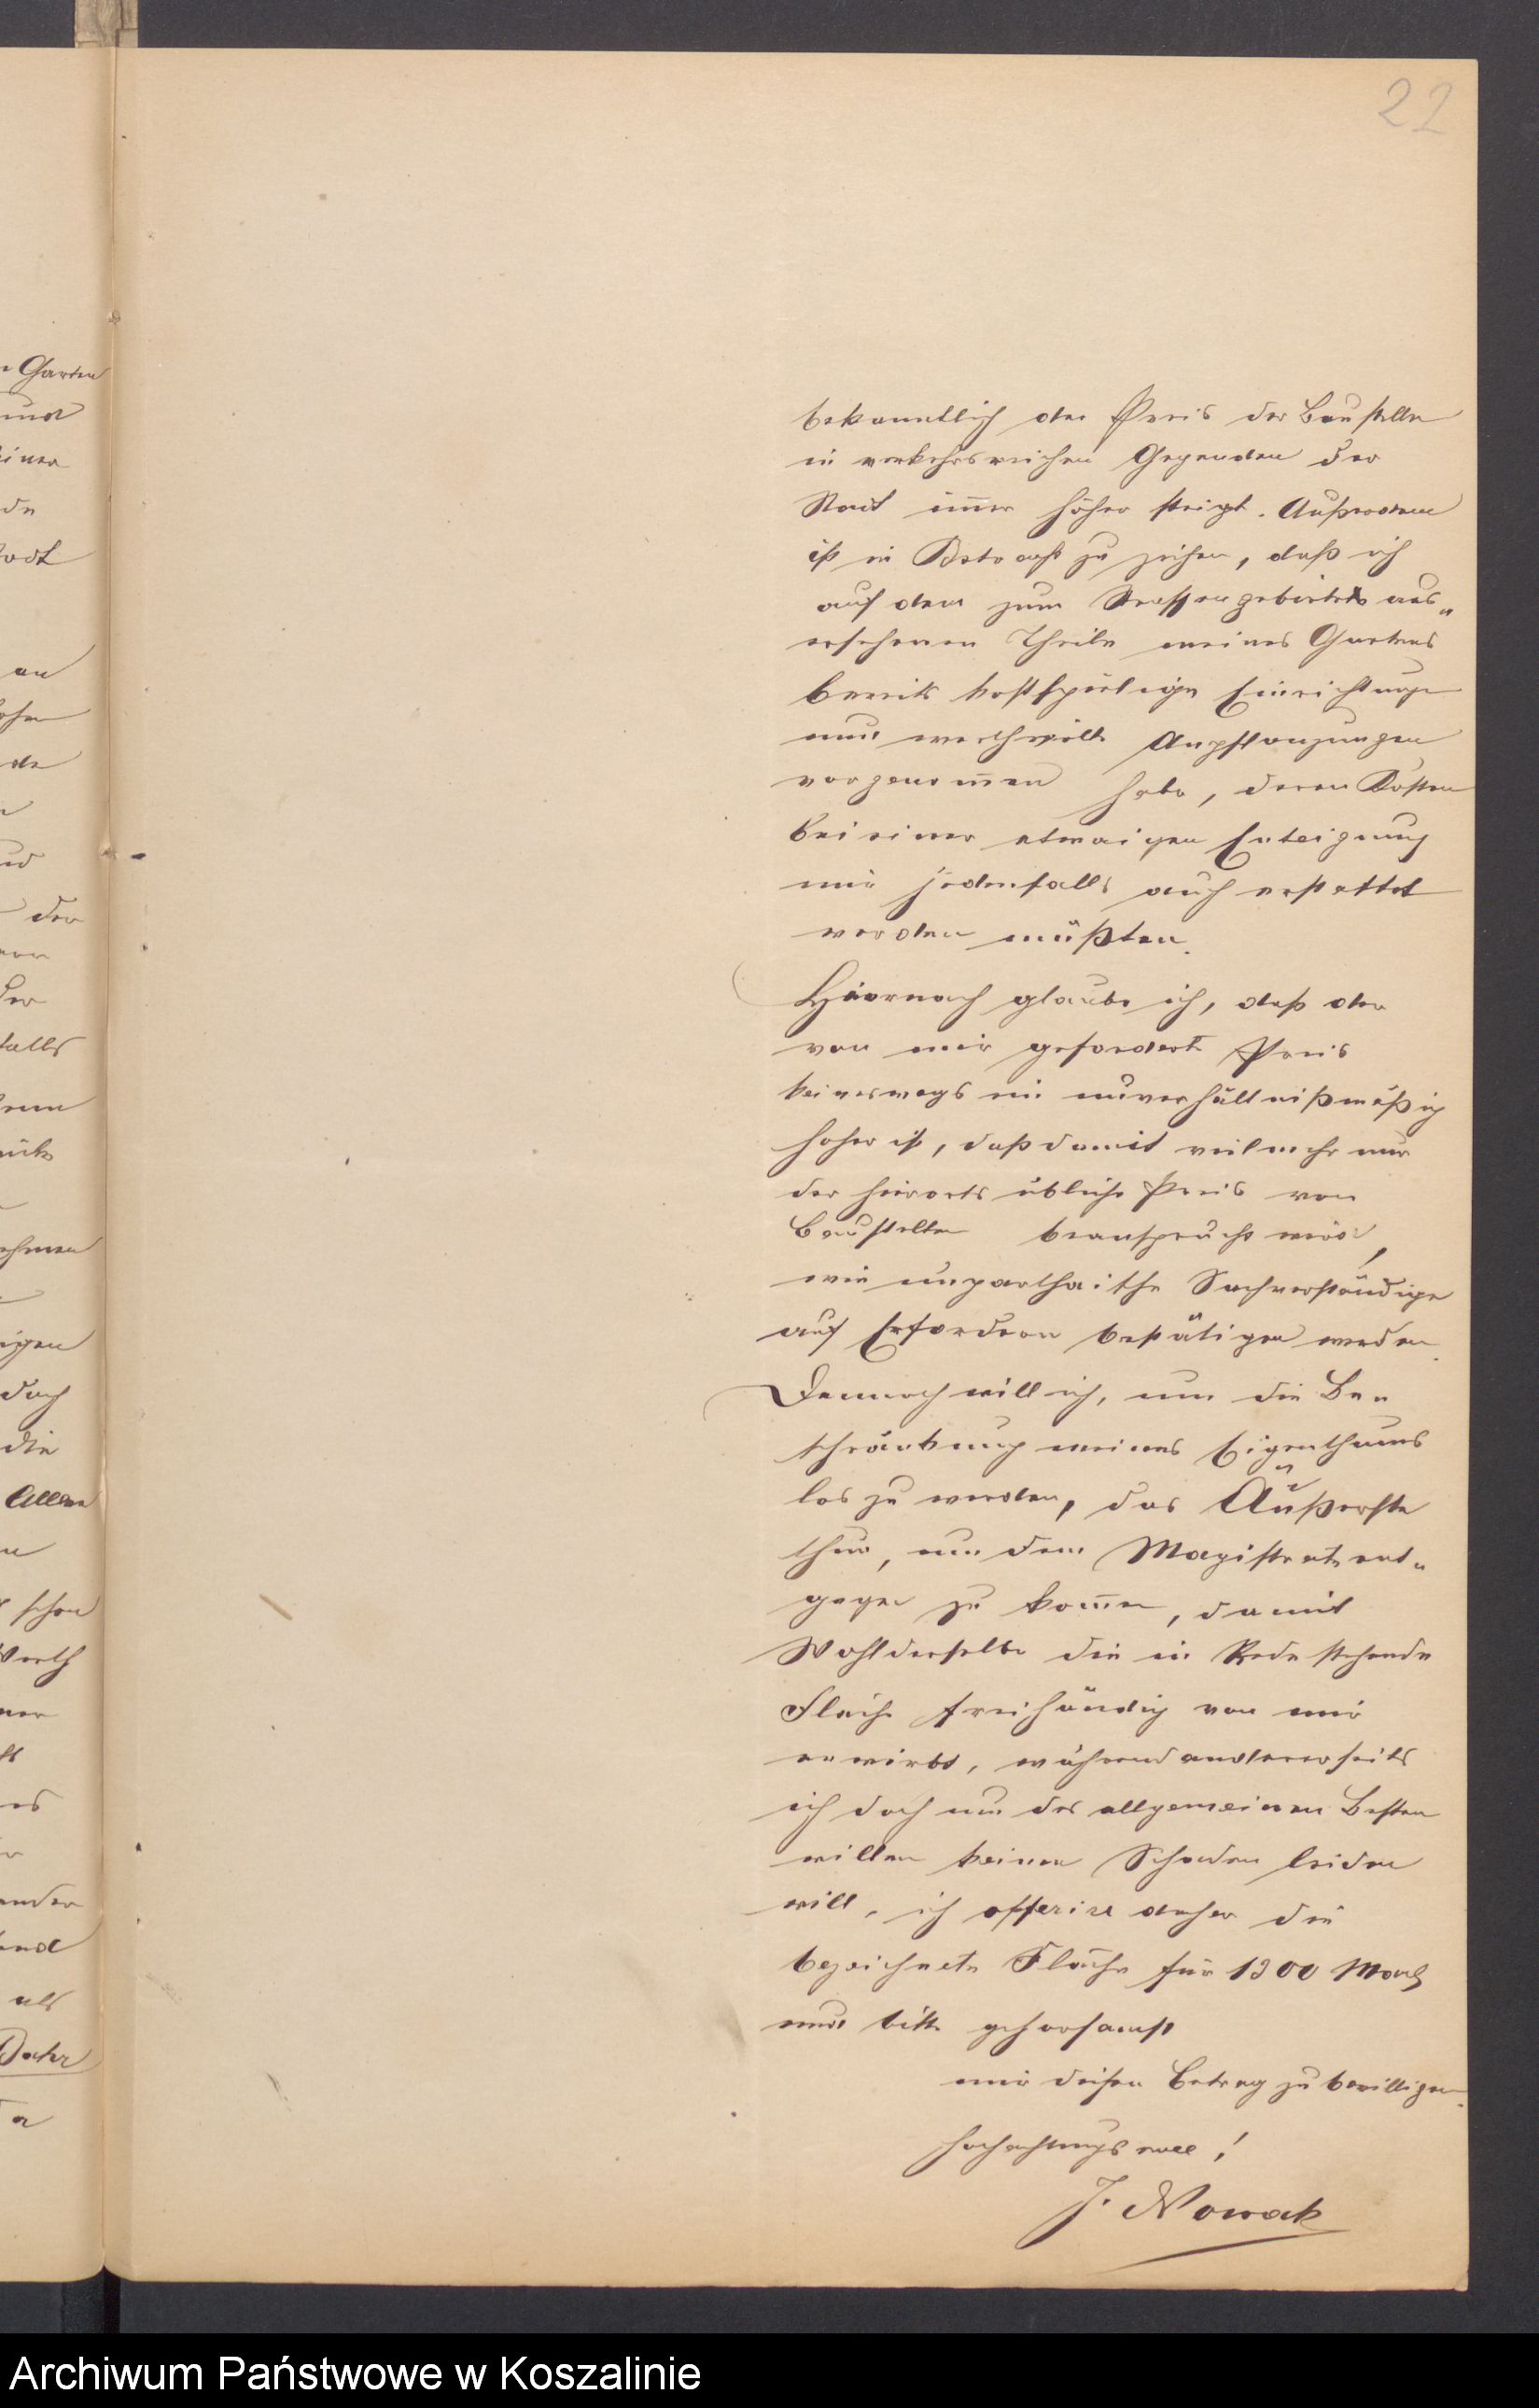 22
Garten
an
der
die
schon
Werth
als
bekanntlich der Preis der Baustelle
in verkehrsreichen Gegenden der
Stadt im̅er höher steigt. Außerdem
ist in Betracht zu ziehen, daß ich
auf dem zum Strassengebiete aus„
ersehenen Theile meines Gartens
bereits kostspielige Einrichtungen
und werthvolle Anpflanzungen
vorgenom̅en habe, deren Kosten
bei einer etwaigen Enteignung
mir jedenfalls auch erstattet
werden müßten.
Hiernach glaube ich, daß der
von mir geforderte Preis
keineswegs ein unverhältnißmäßig
hoher ist, daß damit vielmehr nur
der hierorts übliche Preis von
Baustellen beansprucht wird,
wie unpartheiische Sachverständige
auf Erfordern bestätigen werden.
Dennoch will ich, um die Be„
schränkung meines Eigenthums
los zu werden, das Äußerste
thun, um dem Magistrate ent„
gegen zu kom̅en, damit
Wohlderselbe die in Rede stehende
Fläche freihändig von mir
erwirbt, während andererseits
ich doch um des allgemeinen Besten
willen keinen Schaden leiden
will, ich offerire daher die
bezeichnete Fläche für 1300 Mark
und bitte gehorsamst
mir diesen Betrag zu bewilligen.
Hochachtungsvoll!
J. Nowak
Archiwum Państwowe w Koszalinie